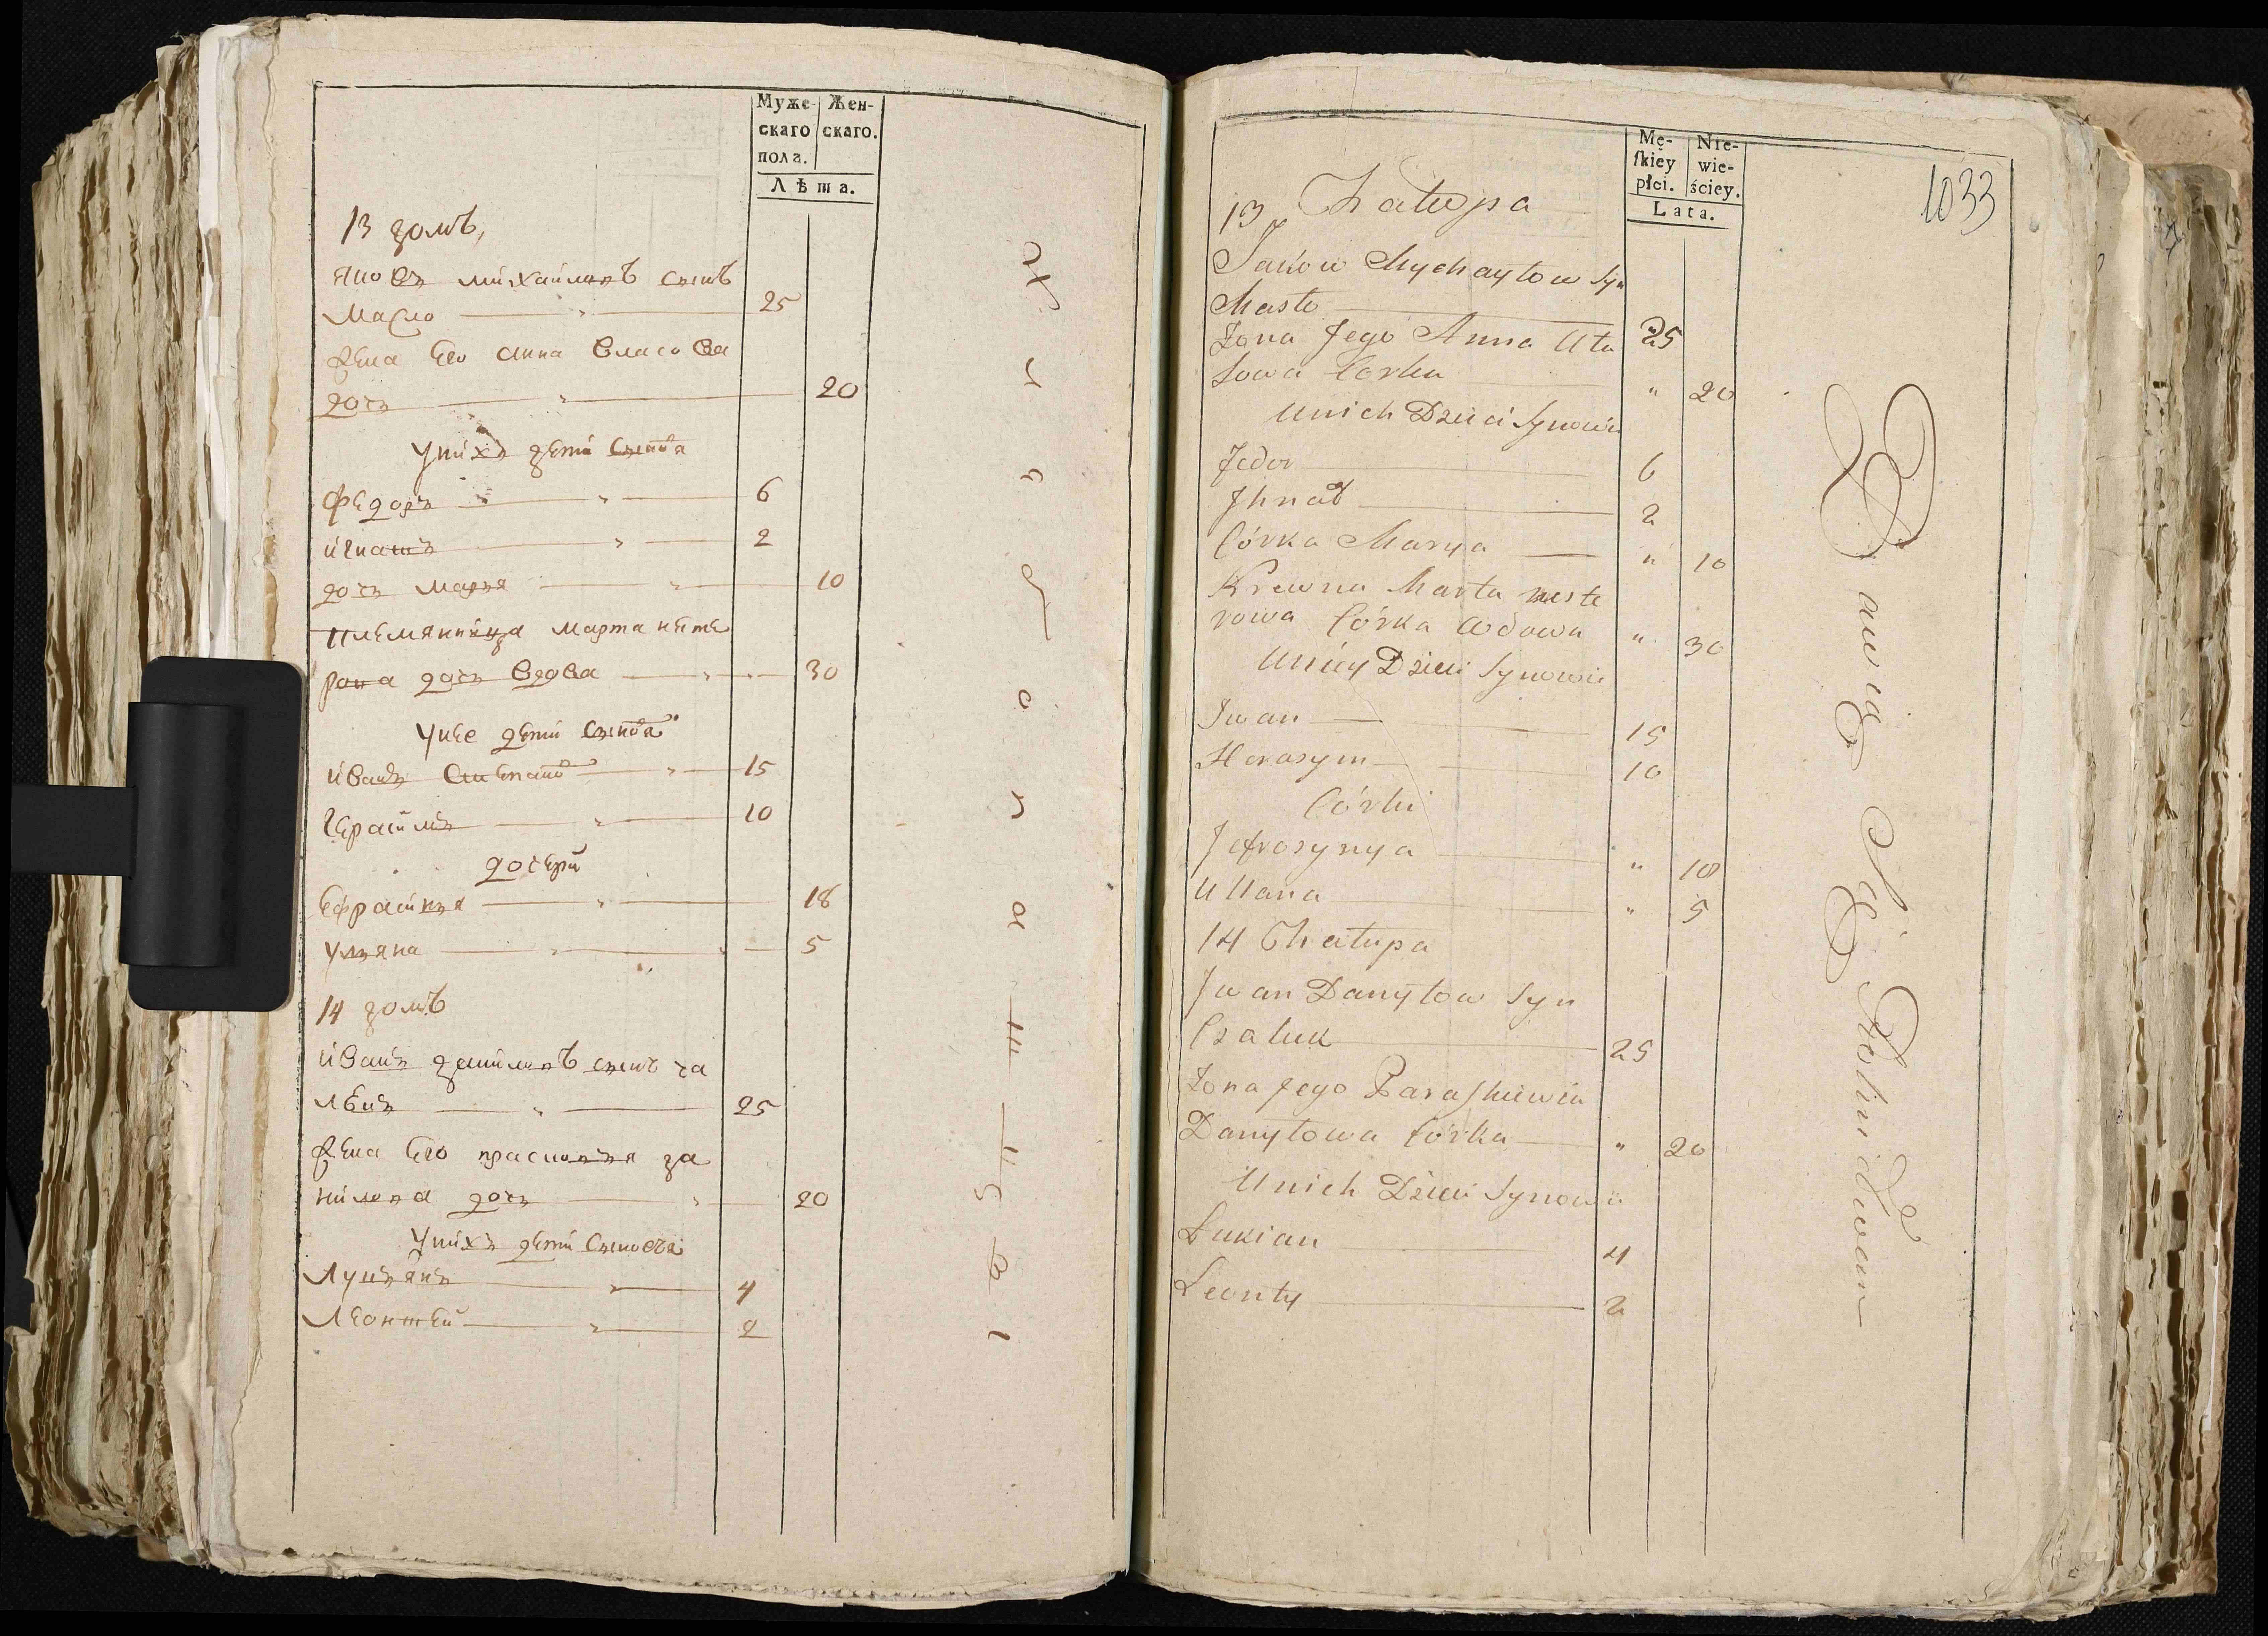 Муже-
скаго
пола.
Жен-
скаго.
Лѣта.
13 домъ,
яковъ михайловъ сынъ
Масло 25
жена Его анна Власова
дочь 20
Унихъ дети сынова
Федоръ 6
игнатъ 2
дочь Марья 10
племянница марта несте
рова дочь Вдова 30
Унее дети сынова
иванъ Степанов 15
Герасимъ 10
дочери
Ефросинья 18
Ульяна 5
14 домъ
иванъ даниловъ сынъ ча
25
жена Его прасковья да
нилова дочь 20
Унихъ дети сыновья
Лукьянъ 4
Леонтей 2
Mę-
ſkiey
płci.
Nie-
wie-
ściey.
Lata.
1033
13 Chałupa
Jakow Mychayłow Syn
Masło 25
Żona Jego Anna Uła
sowa Corka " 20
Unich Dzieci Synowie
Fedor 6
Ihnat 2
Córka Marya " 10
Krewna Marta neste
rowa Córka Wdowa " 30
Unięy Dzieci Synowie
Iwan 15
Herasym 10
Córki
Jefrosynya " 18
Ullana " 5
14 Chałupa
Iwan Danyłow Syn
Czaluk 25
Żona Jego Paraſkiewia
Danyłowa Córka " 20
Unich Dzieci Synowie
Łukian 4
Leonty 2